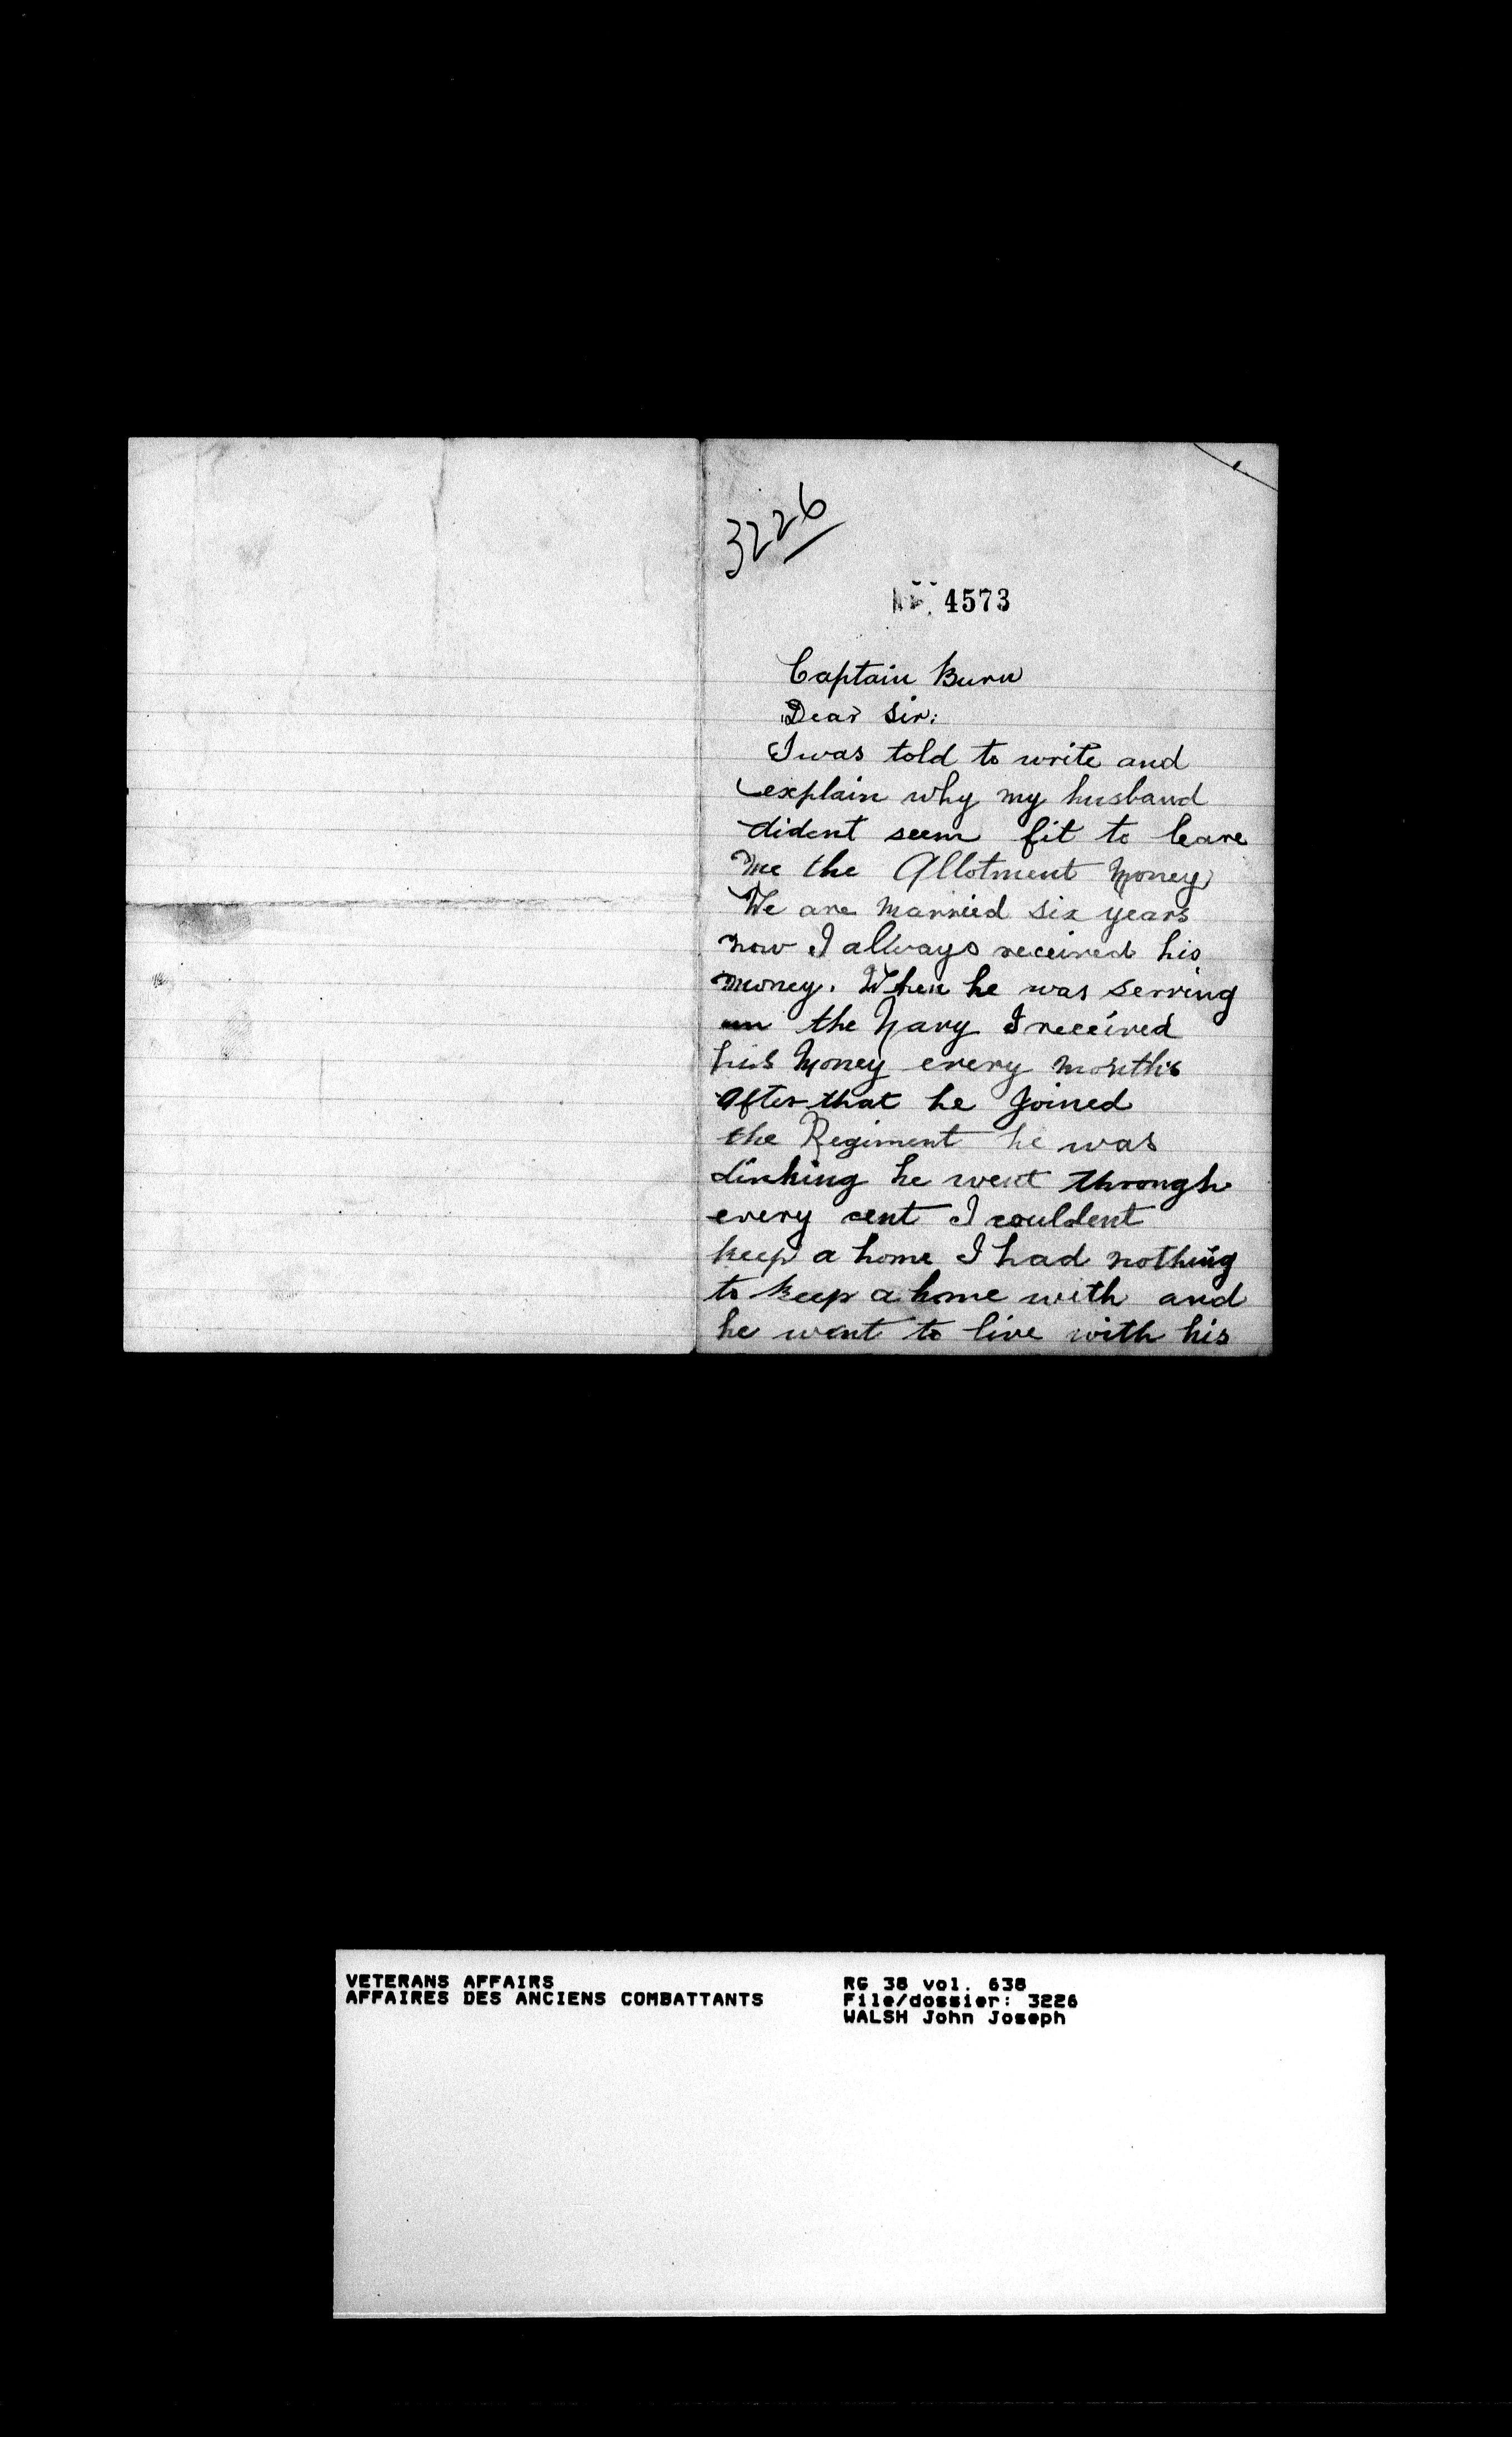 3226
4573
Captain Burn
Dear Sir:
I was told to write and
explain why my husband
dident seem fit to leave
me the Allotment Money
We are married six years
now I allways received his
money. When he was serving
in the Navy I received
his Money every months
after that he joined
the Regiment he was
dinking he went through
every cent I couldent
keep a home I had nothing
to keep a home with and
he went to live with his
VETERANS AFFAIRS
AFFAIRES DES ANCIENS COMBATTANTS
RG 38 vol. 638
File/dossier: 3226
WALSH John Joseph